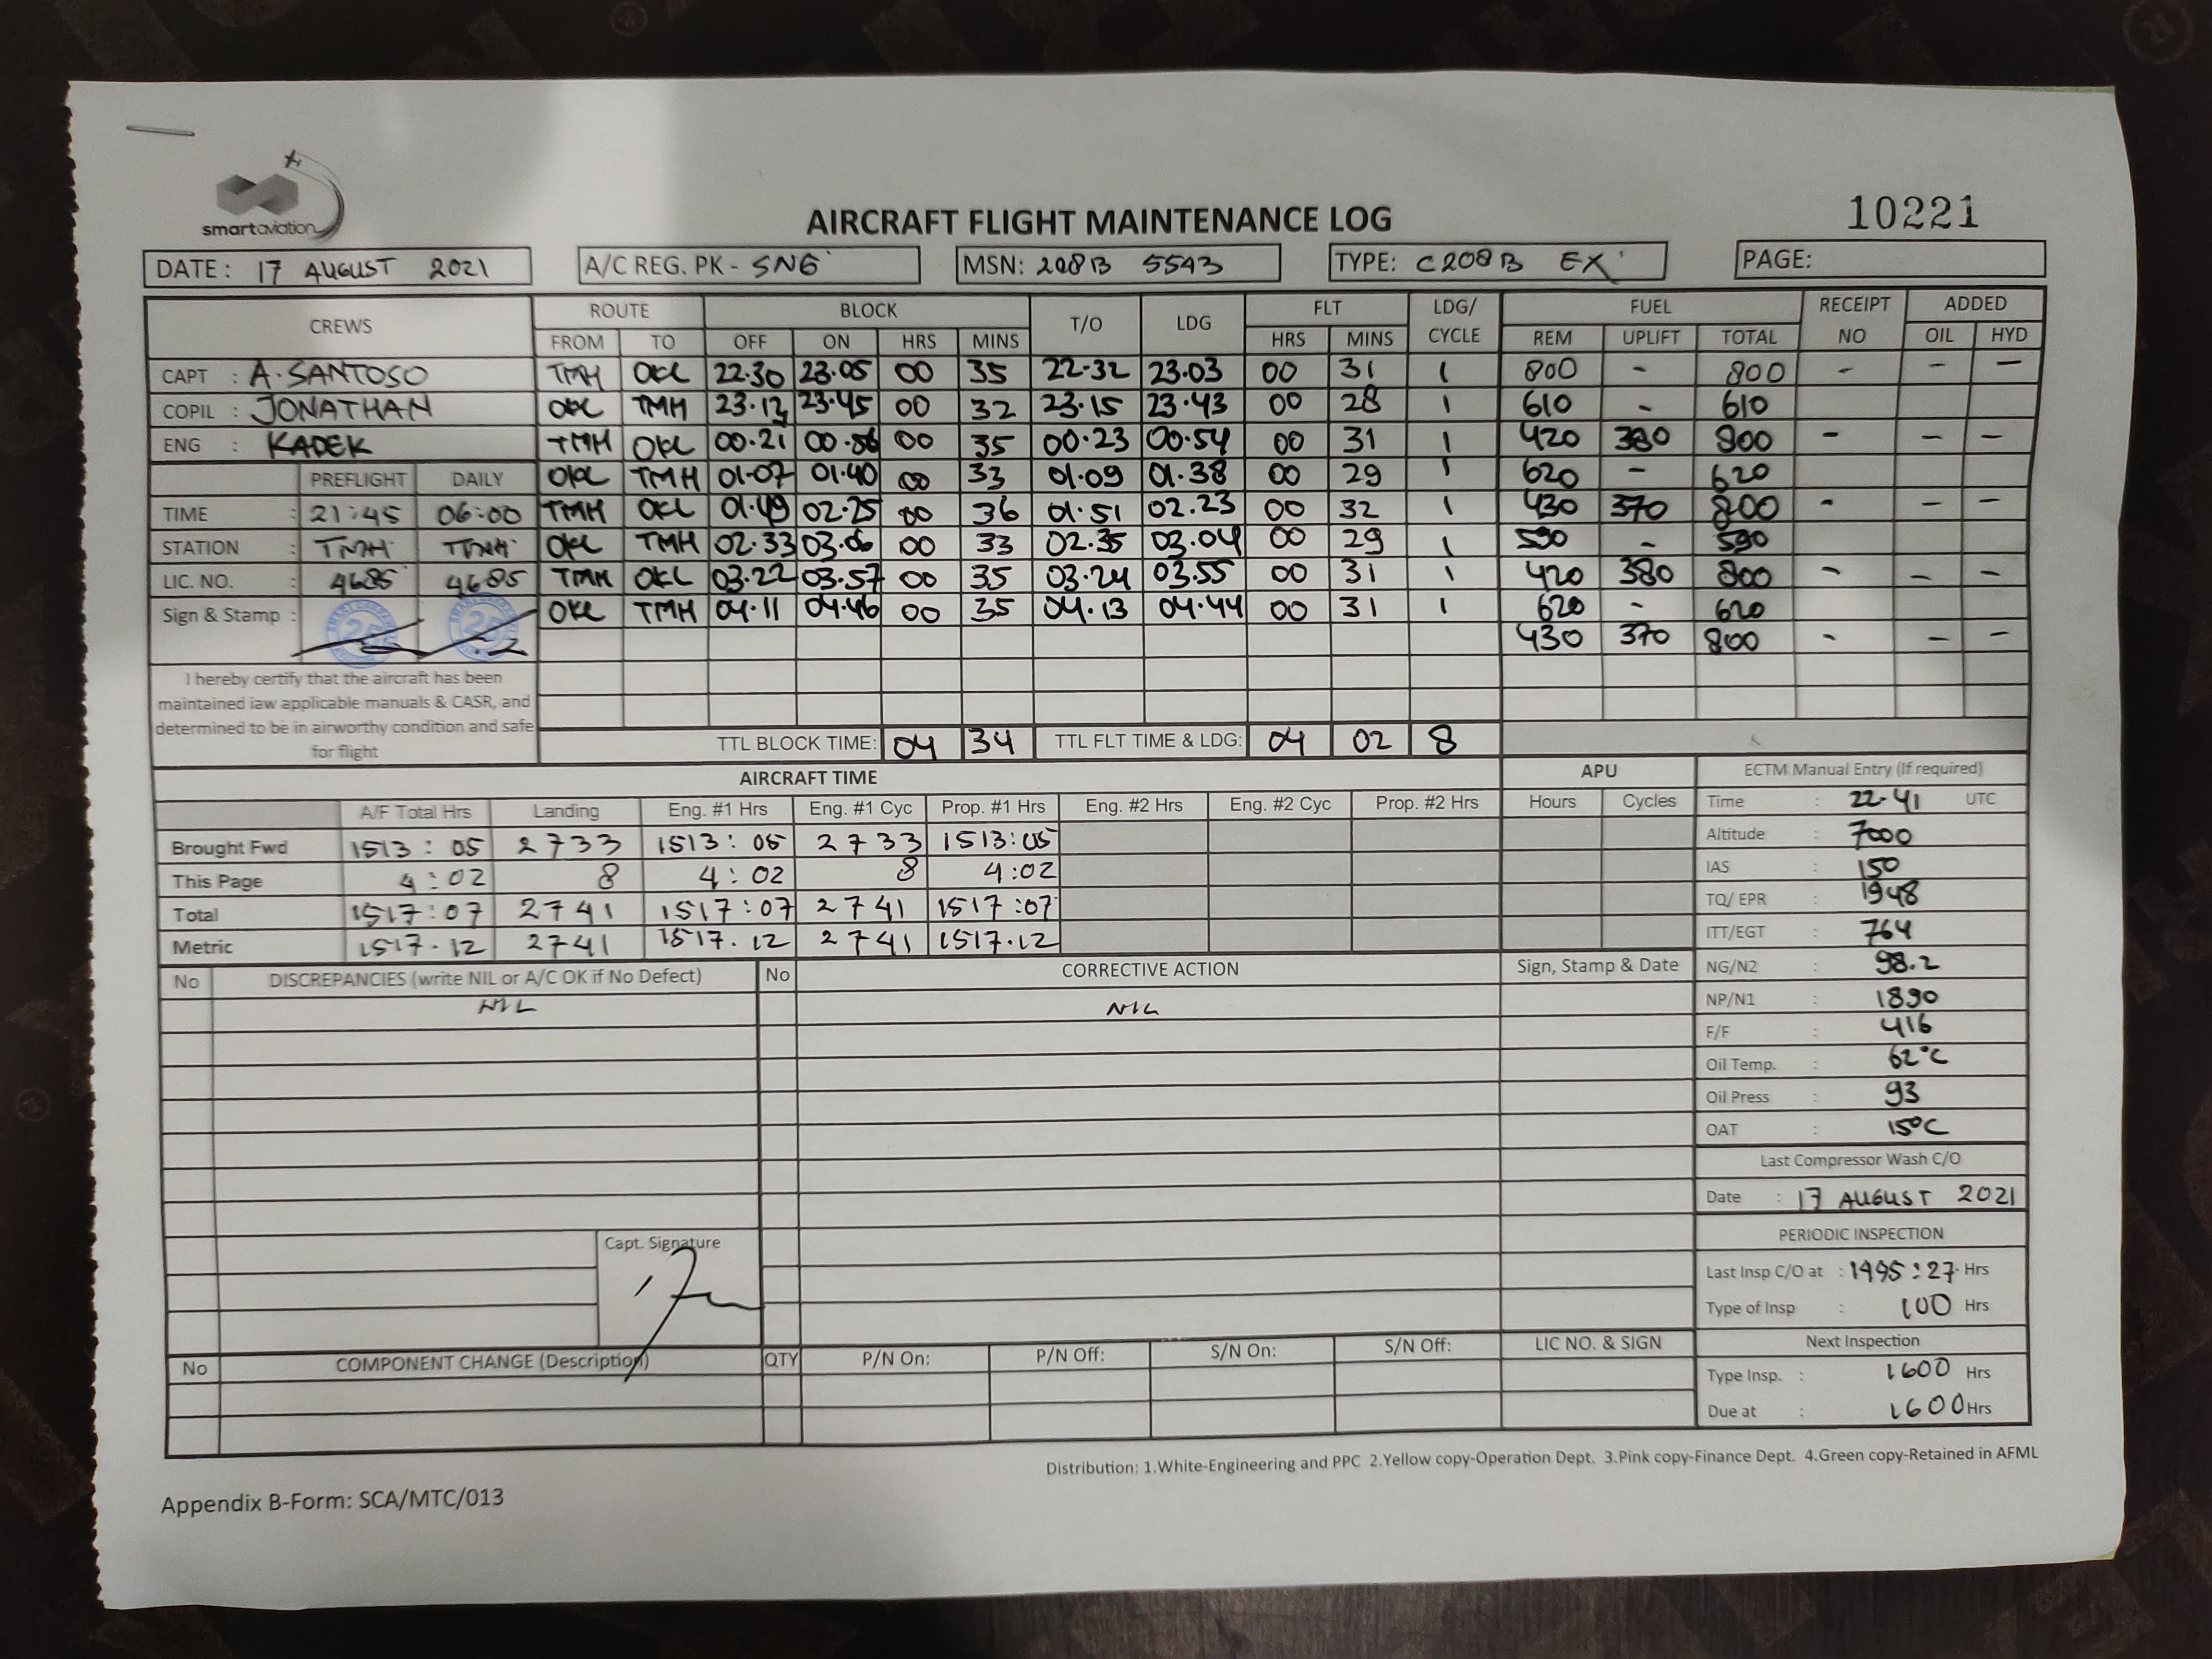 smartaviation
AIRCRAFT FLIGHT MAINTENANCE LOG
10221
DATE: 17 AUGUST 2021 A/C REG. PK - SNG MSN: 208B 5543 TYPE: C208B EX PAGE:
CREWS ROUTE BLOCK T/O LDG FLT LDG/ CYCLE FUEL RECEIPT NO ADDED
FROM TO OFF ON HRS MINS HRS MINS REM UPLIFT TOTAL OIL HYD
CAPT : A. SANTOSO TMH OKL 22.30 23.05 00 35 22.32 23.03 00 31 1 800 - 800 - - -
COPIL : JONATHAN OKL TMH 23.13 23.45 00 32 23.15 23.43 00 28 1 610 - 610
ENG : KADEK TMH OKL 00.21 00.56 00 35 00.23 00.54 00 31 1 420 380 800 - - -
PREFLIGHT DAILY OKL TMH 01.07 01.40 00 33 01.09 01.38 00 29 1 620 - 620
TIME : 21:45 06:00 TMH OKL 01.49 02.25 00 36 01.51 02.23 00 32 1 430 370 800 - - -
STATION : TMH TMH OKL TMH 02.33 03.06 00 33 02.35 03.04 00 29 1 590 - 590
LIC. NO. : 4685 4685 TMH OKL 03.22 03.57 00 35 03.24 03.55 00 31 1 420 380 800 - - -
Sign & Stamp : OKL TMH 04.11 04.46 00 35 04.13 04.44 00 31 1 620 - 620
430 370 800 - - -
I hereby certify that the aircraft has been
maintained iaw applicable manuals & CASR, and
determined to be in airworthy condition and safe
for flight
TTL BLOCK TIME: 04 34 TTL FLT TIME & LDG: 04 02 8
AIRCRAFT TIME APU ECTM Manual Entry (If required)
A/F Total Hrs Landing Eng. #1 Hrs Eng. #1 Cyc Prop. #1 Hrs Eng. #2 Hrs Eng. #2 Cyc Prop. #2 Hrs Hours Cycles Time : 22.41 UTC
Brought Fwd 1513 : 05 2733 1513 : 05 2733 1513:05 Altitude : 7000
This Page 4 : 02 8 4 : 02 8 4 :02 IAS : 150
Total 1517 : 07 2741 1517 : 07 2741 1517 :07 TQ/ EPR : 1948
Metric 1517.12 2741 1517.12 2741 1517.12 ITT/EGT : 764
No DISCREPANCIES (write NIL or A/C OK if No Defect) No CORRECTIVE ACTION Sign, Stamp & Date NG/N2 : 98.2
NIL NIL NP/N1 : 1890
F/F : 416
Oil Temp. : 62°C
Oil Press : 93
OAT : 15°C
Last Compressor Wash C/O
Date : 17 AUGUST 2021
Capt. Signature PERIODIC INSPECTION
Last Insp C/O at : 1495:27 Hrs
Type of Insp : 100 Hrs
No COMPONENT CHANGE (Description) QTY P/N On: P/N Off: S/N On: S/N Off: LIC NO. & SIGN Next Inspection
Type Insp. : 1600 Hrs
Due at : 1600 Hrs
Distribution: 1.White-Engineering and PPC 2.Yellow copy-Operation Dept. 3.Pink copy-Finance Dept. 4.Green copy-Retained in AFML
Appendix B-Form: SCA/MTC/013